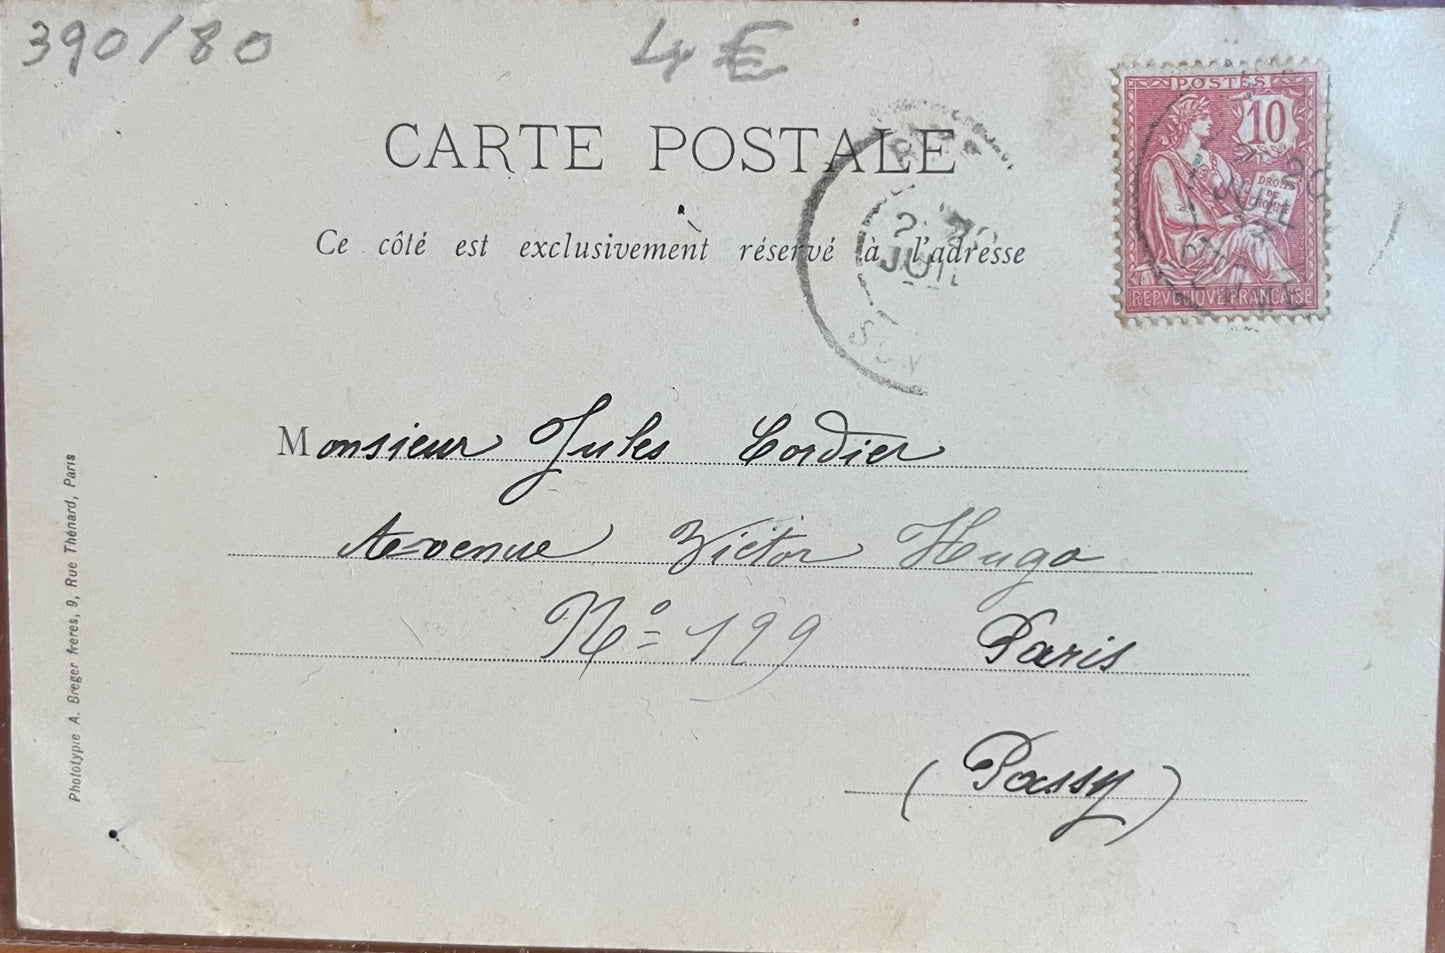 390/80
4€
POSTES
10
DROITS
DE
L'HOMME
REPVBLIQVE FRANÇAISE
CARTE POSTALE
JUIL
JUIL
Ce côté est exclusivement réservé à l'adresse
Monsieur Jules Cordier
Avenue Victor Hugo
No 199 Paris
(Passy)
Phototypie A. Breger frères, 9, Rue Thénard, Paris